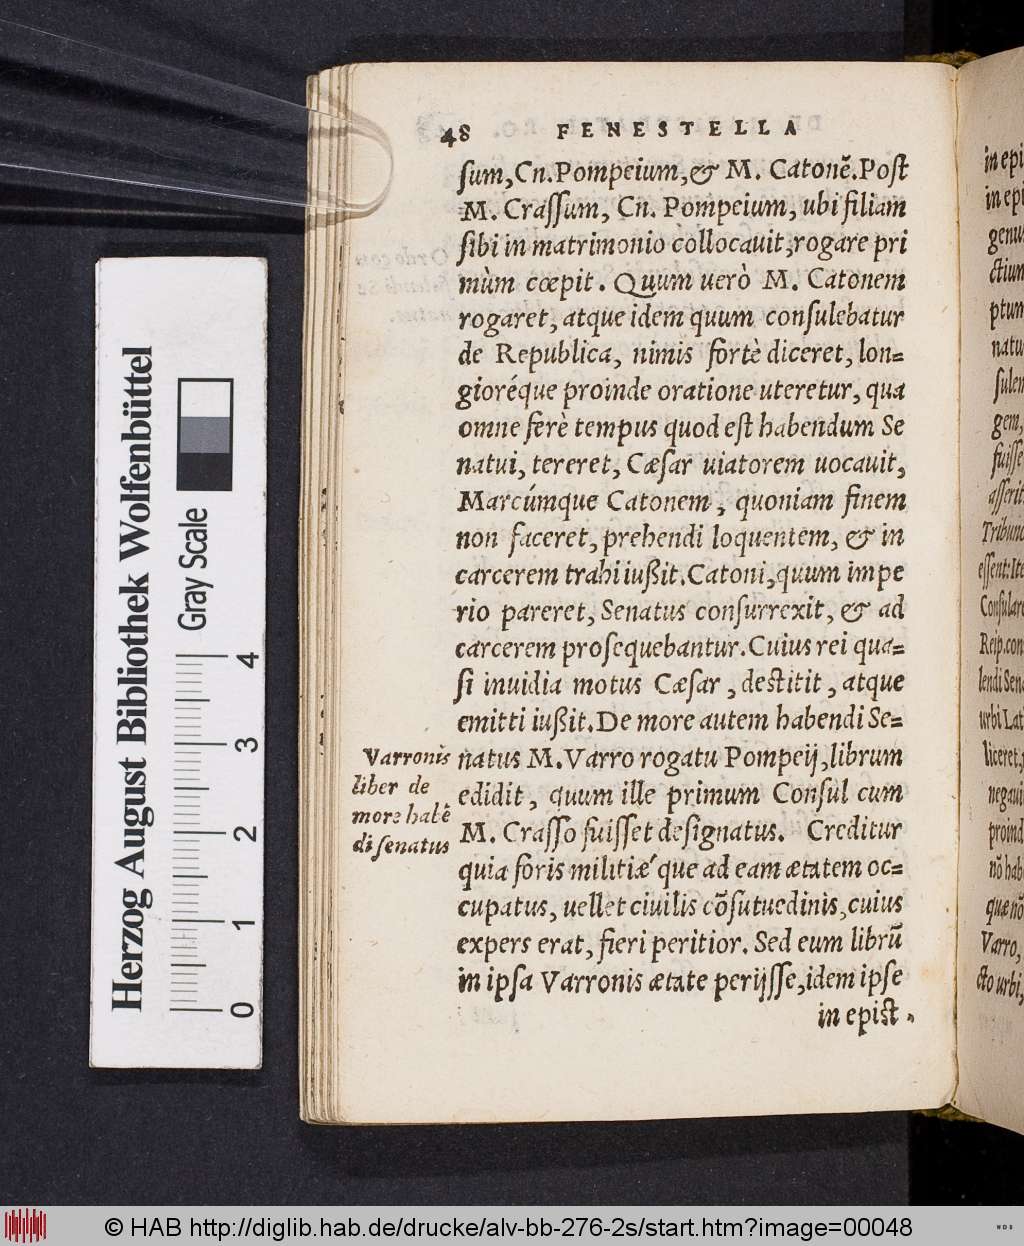 48 FENESTELLA
sum, Cn. Pompeium, & M. Catonẽ. Post
M. Crassum, Cn. Pompeium, ubi filiam
sibi in matrimonio collocauit, rogare pri
mùm cœpit. Quum uerò M. Catonem
rogaret, atque idem quum consulebatur
de Republica, nimis fortè diceret, lon=
gioréque proinde oratione uteretur, qua
omne ferè tempus quod est habendum Se
natui, tereret, Cæsar uiatorem uocauit,
Marcúmque Catonem, quoniam finem
non faceret, prehendi loquentem, & in
carcerem trahi iußit. Catoni, quum impe
rio pareret, Senatus consurrexit, & ad
carcerem prosequebantur. Cuius rei qua=
si inuidia motus Cæsar, destitit, atque
emitti iußit. De more autem habendi Se=
natus M. Varro rogatu Pompeij, librum
edidit, quum ille primum Consul cum
M. Crasso fuisset designatus. Creditur
quia foris militiæ´que ad eam ætatem oc=
cupatus, uellet ciuilis cõsutuedinis, cuius
expers erat, fieri peritior. Sed eum librũ
in ipsa Varronis ætate perijsse, idem ipse
in epist.
Varronis
liber de
more habẽ
di senatus
in epi
in epi
genus
ctium
ptum
natu
sulem
gem,
fuisse
asserit
Tribuno
essent: Ite
Consulare
Reip. con
lendi Sena
urbi Lat
liceret,
negaui
proind
nõ hab
quæ nõ
Varro,
cto urbi,
Herzog August Bibliothek Wolfenbüttel
Gray Scale
0 1 2 3 4
© HAB http://diglib.hab.de/drucke/alv-bb-276-2s/start.htm?image=00048
WDB